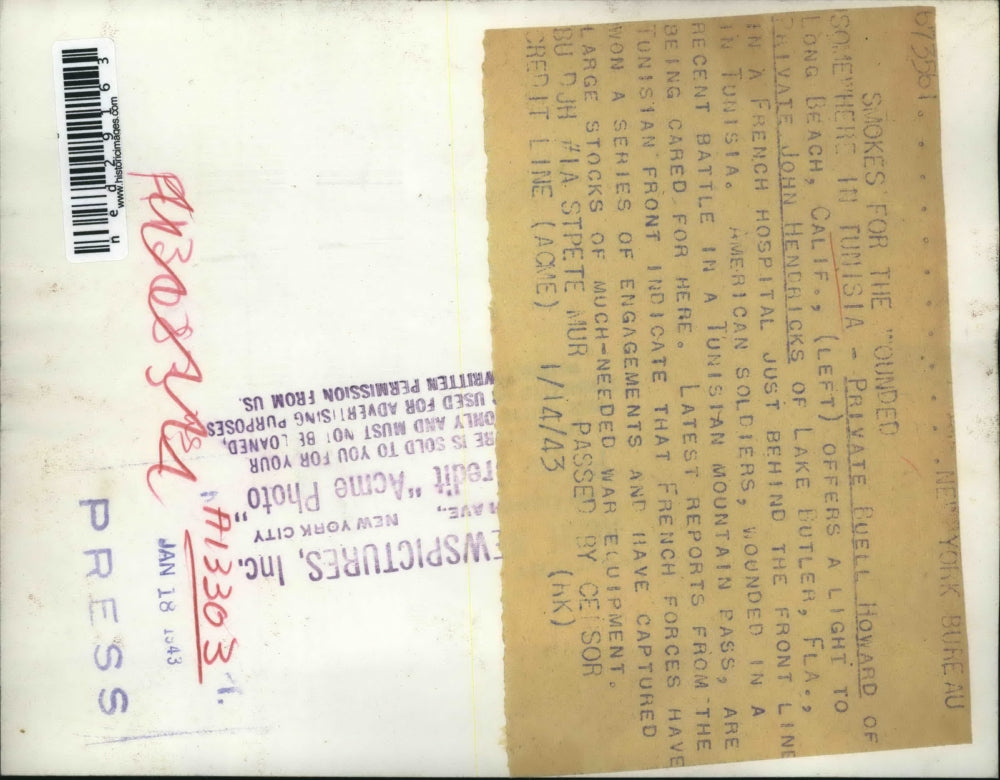 673561 . . . . . . . . . . . . . NEW YORK BUREAU
SMOKES FOR THE WOUNDED
SOMEWHERE IN TUNISIA - PRIVATE BUELL HOWARD OF
LONG BEACH, CALIF., (LEFT) OFFERS A LIGHT TO
PRIVATE JOHN HENDRICKS OF LAKE BUTLER, FLA.,
IN A FRENCH HOSPITAL JUST BEHIND THE FRONT LINE
IN TUNISIA. AMERICAN SOLDIERS, WOUNDED IN A
RECENT BATTLE IN A TUNISIAN MOUNTAIN PASS, ARE
BEING CARED FOR HERE. LATEST REPORTS FROM THE
TUNISIAN FRONT INDICATE THAT FRENCH FORCES HAVE
WON A SERIES OF ENGAGEMENTS AND HAVE CAPTURED
LARGE STOCKS OF MUCH-NEEDED WAR EQUIPMENT.
BU DJH #1A STPETE MUR PASSED BY CENSOR
CREDIT LINE (ACME) 1/14/43 (HK)
EWSPICTURES, Inc.
H AVE., NEW YORK CITY
redit "Acme Photo"
RE IS SOLD TO YOU FOR YOUR
ONLY AND MUST NOT BE LOANED,
USED FOR ADVERTISING PURPOSES
WRITTEN PERMISSION FROM US.
A13303
JAN 18 1943
PRESS
www.historicimages.com
ned29163